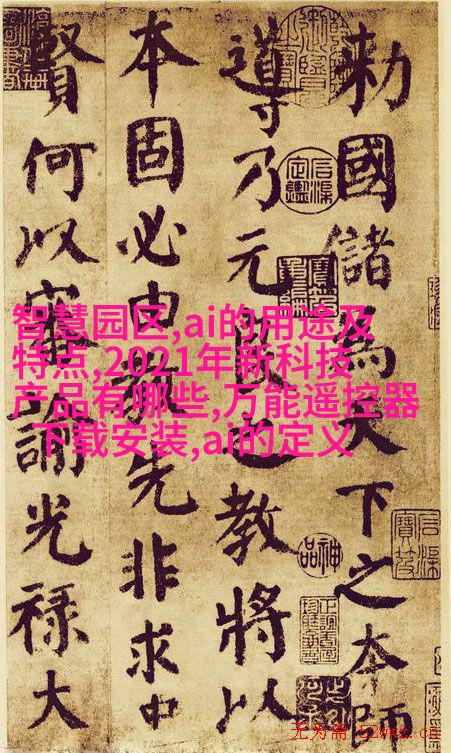 勅國儲為天下之本師
導乃元之教將以
本固必由教先非求中
賢何以審諭光祿大
智慧园区,ai的用途及
特点,2021年新科技
产品有哪些,万能遥控器
下载安装,ai的定义
无为斋